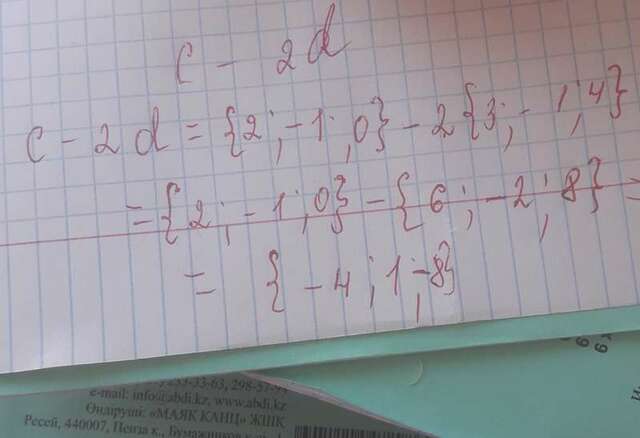 c - 2d
c - 2d = {2; -1; 0} - 2{3; -1; 4}
= {2; -1; 0} - {6; -2; 8} =
= {-4; 1; -8}
33-63, 298-57-
e-mail: info@abdi.kz, www.abdi.kz
Өндіруші: «МАЯК КАНЦ» ЖШК
Ресей, 440007, Пенза к., Бумажников